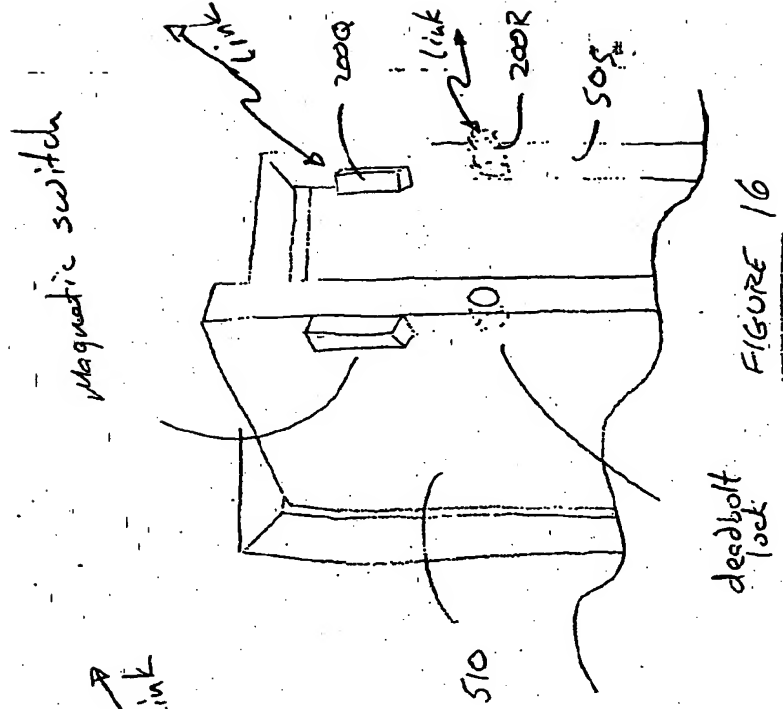 Magnetic switch
Link
200Q
link
200R
505
ink
510
deadbolt
lock
FIGURE 16